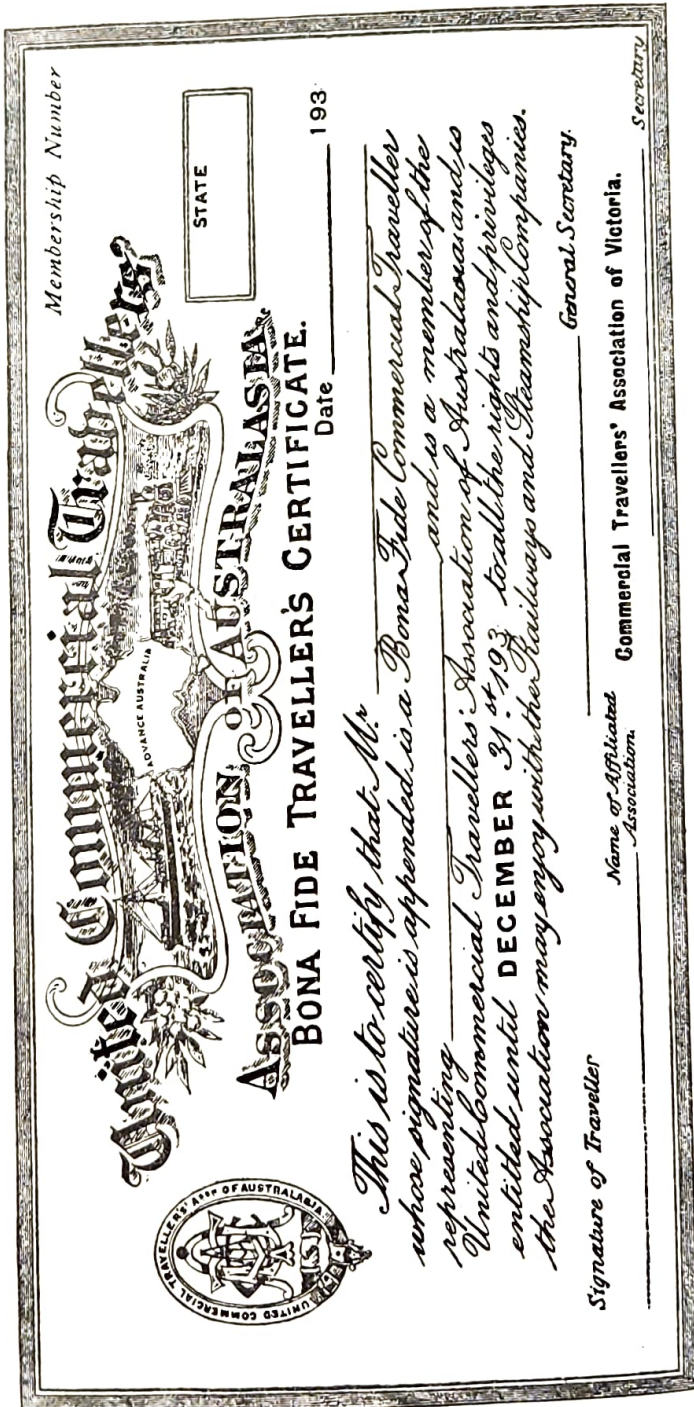 Membership Number
United Commercial Travellers'
ADVANCE AUSTRALIA
ASSOCIATION OF AUSTRALASIA
STATE
UNITED COMMERCIAL TRAVELLER'S' ASSN OF AUSTRALASIA.
BONA FIDE TRAVELLER'S CERTIFICATE.
Date 193
This is to certify that Mr.
whose signature is appended is a Bona Fide Commercial Traveller
representing and is a member of the
United Commercial Travellers' Association of Australasia and is
entitled until DECEMBER 31st 193 to all the rights and privileges
the Association may enjoy with the Railways and Steamship Companies.
General Secretary.
Signature of Traveller
Name of Affiliated
Association.
Commercial Travellers' Association of Victoria.
Secretary